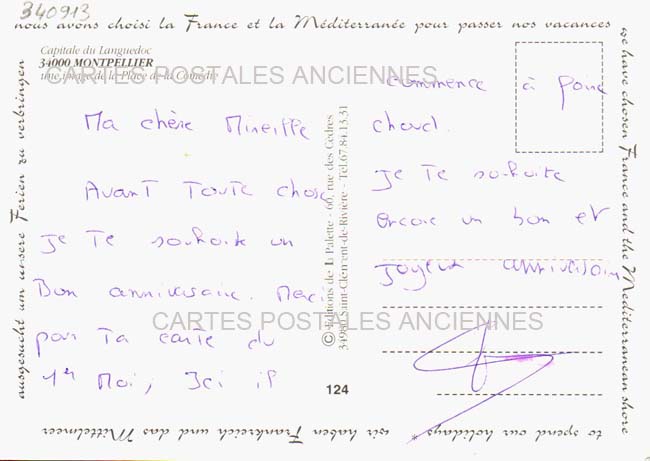 340913
nous avons choisi la France et la Méditerranée pour passer nos vacances
Capitale du Languedoc
34000 MONTPELLIER
une image de la Place de la Comédie
CARTES POSTALES ANCIENNES
Ma chère Mireille
Avant toute chose
je te souhaite un
Bon anniversaire. Merci
pour ta carte du
1er Mai, Ici il
commence à faire
chaud.
je te souhaite
encore un bon et
joyeux anniversaire
CARTES POSTALES ANCIENNES
© Editions de la Palette - 60, rue des Cèdres
34980 Saint-Clément-de-Rivière - Tél.67.84.13.31
124
we have chosen France and the Mediterranean shore
to spend our holidays * wir haben Frankreich und das Mittelmeer
ausgesucht um unsere Ferien zu verbringen